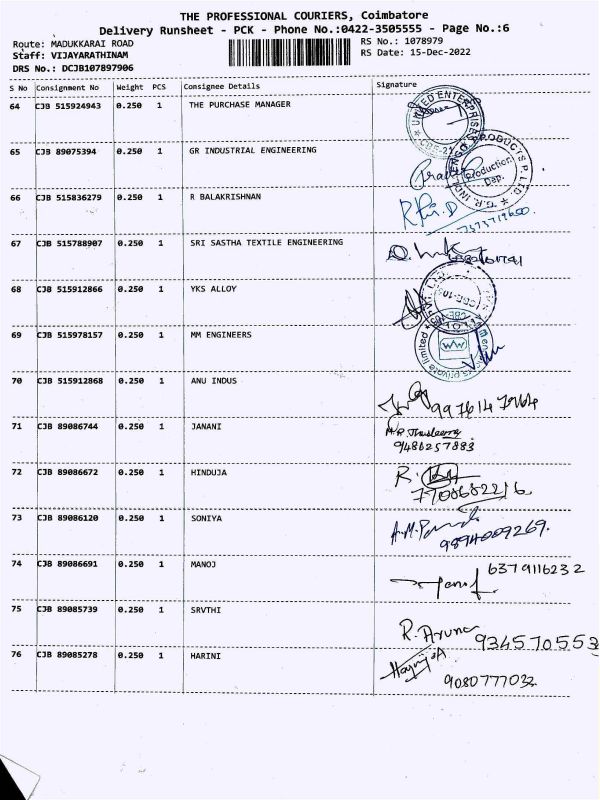 THE PROFESSIONAL COURIERS, Coimbatore
Delivery Runsheet - PCK - Phone No.:0422-3505555 - Page No.:6
Route: MADUKKARAI ROAD RS No.: 1078979
Staff: VIJAYARATHINAM RS Date: 15-Dec-2022
DRS No.: DCJB107897906
S No Consignment No Weight PCS Consignee Details Signature
64 CJB 515924943 0.250 1 THE PURCHASE MANAGER
UNITED ENTERPRISES
65 CJB 89075394 0.250 1 GR INDUSTRIAL ENGINEERING
Production
Dep.
66 CJB 515836279 0.250 1 R BALAKRISHNAN
67 CJB 515788907 0.250 1 SRI SASTHA TEXTILE ENGINEERING
68 CJB 515912866 0.250 1 YKS ALLOY
69 CJB 515978157 0.250 1 MM ENGINEERS
private limited
70 CJB 515912868 0.250 1 ANU INDUS
71 CJB 89086744 0.250 1 JANANI
9486257883
72 CJB 89086672 0.250 1 HINDUJA
7708682216
73 CJB 89086120 0.250 1 SONIYA
9894009269.
74 CJB 89086691 0.250 1 MANOJ
6379116232
75 CJB 89085739 0.250 1 SRVTHI
R. Aruna 934570553
76 CJB 89085278 0.250 1 HARINI
9080777032